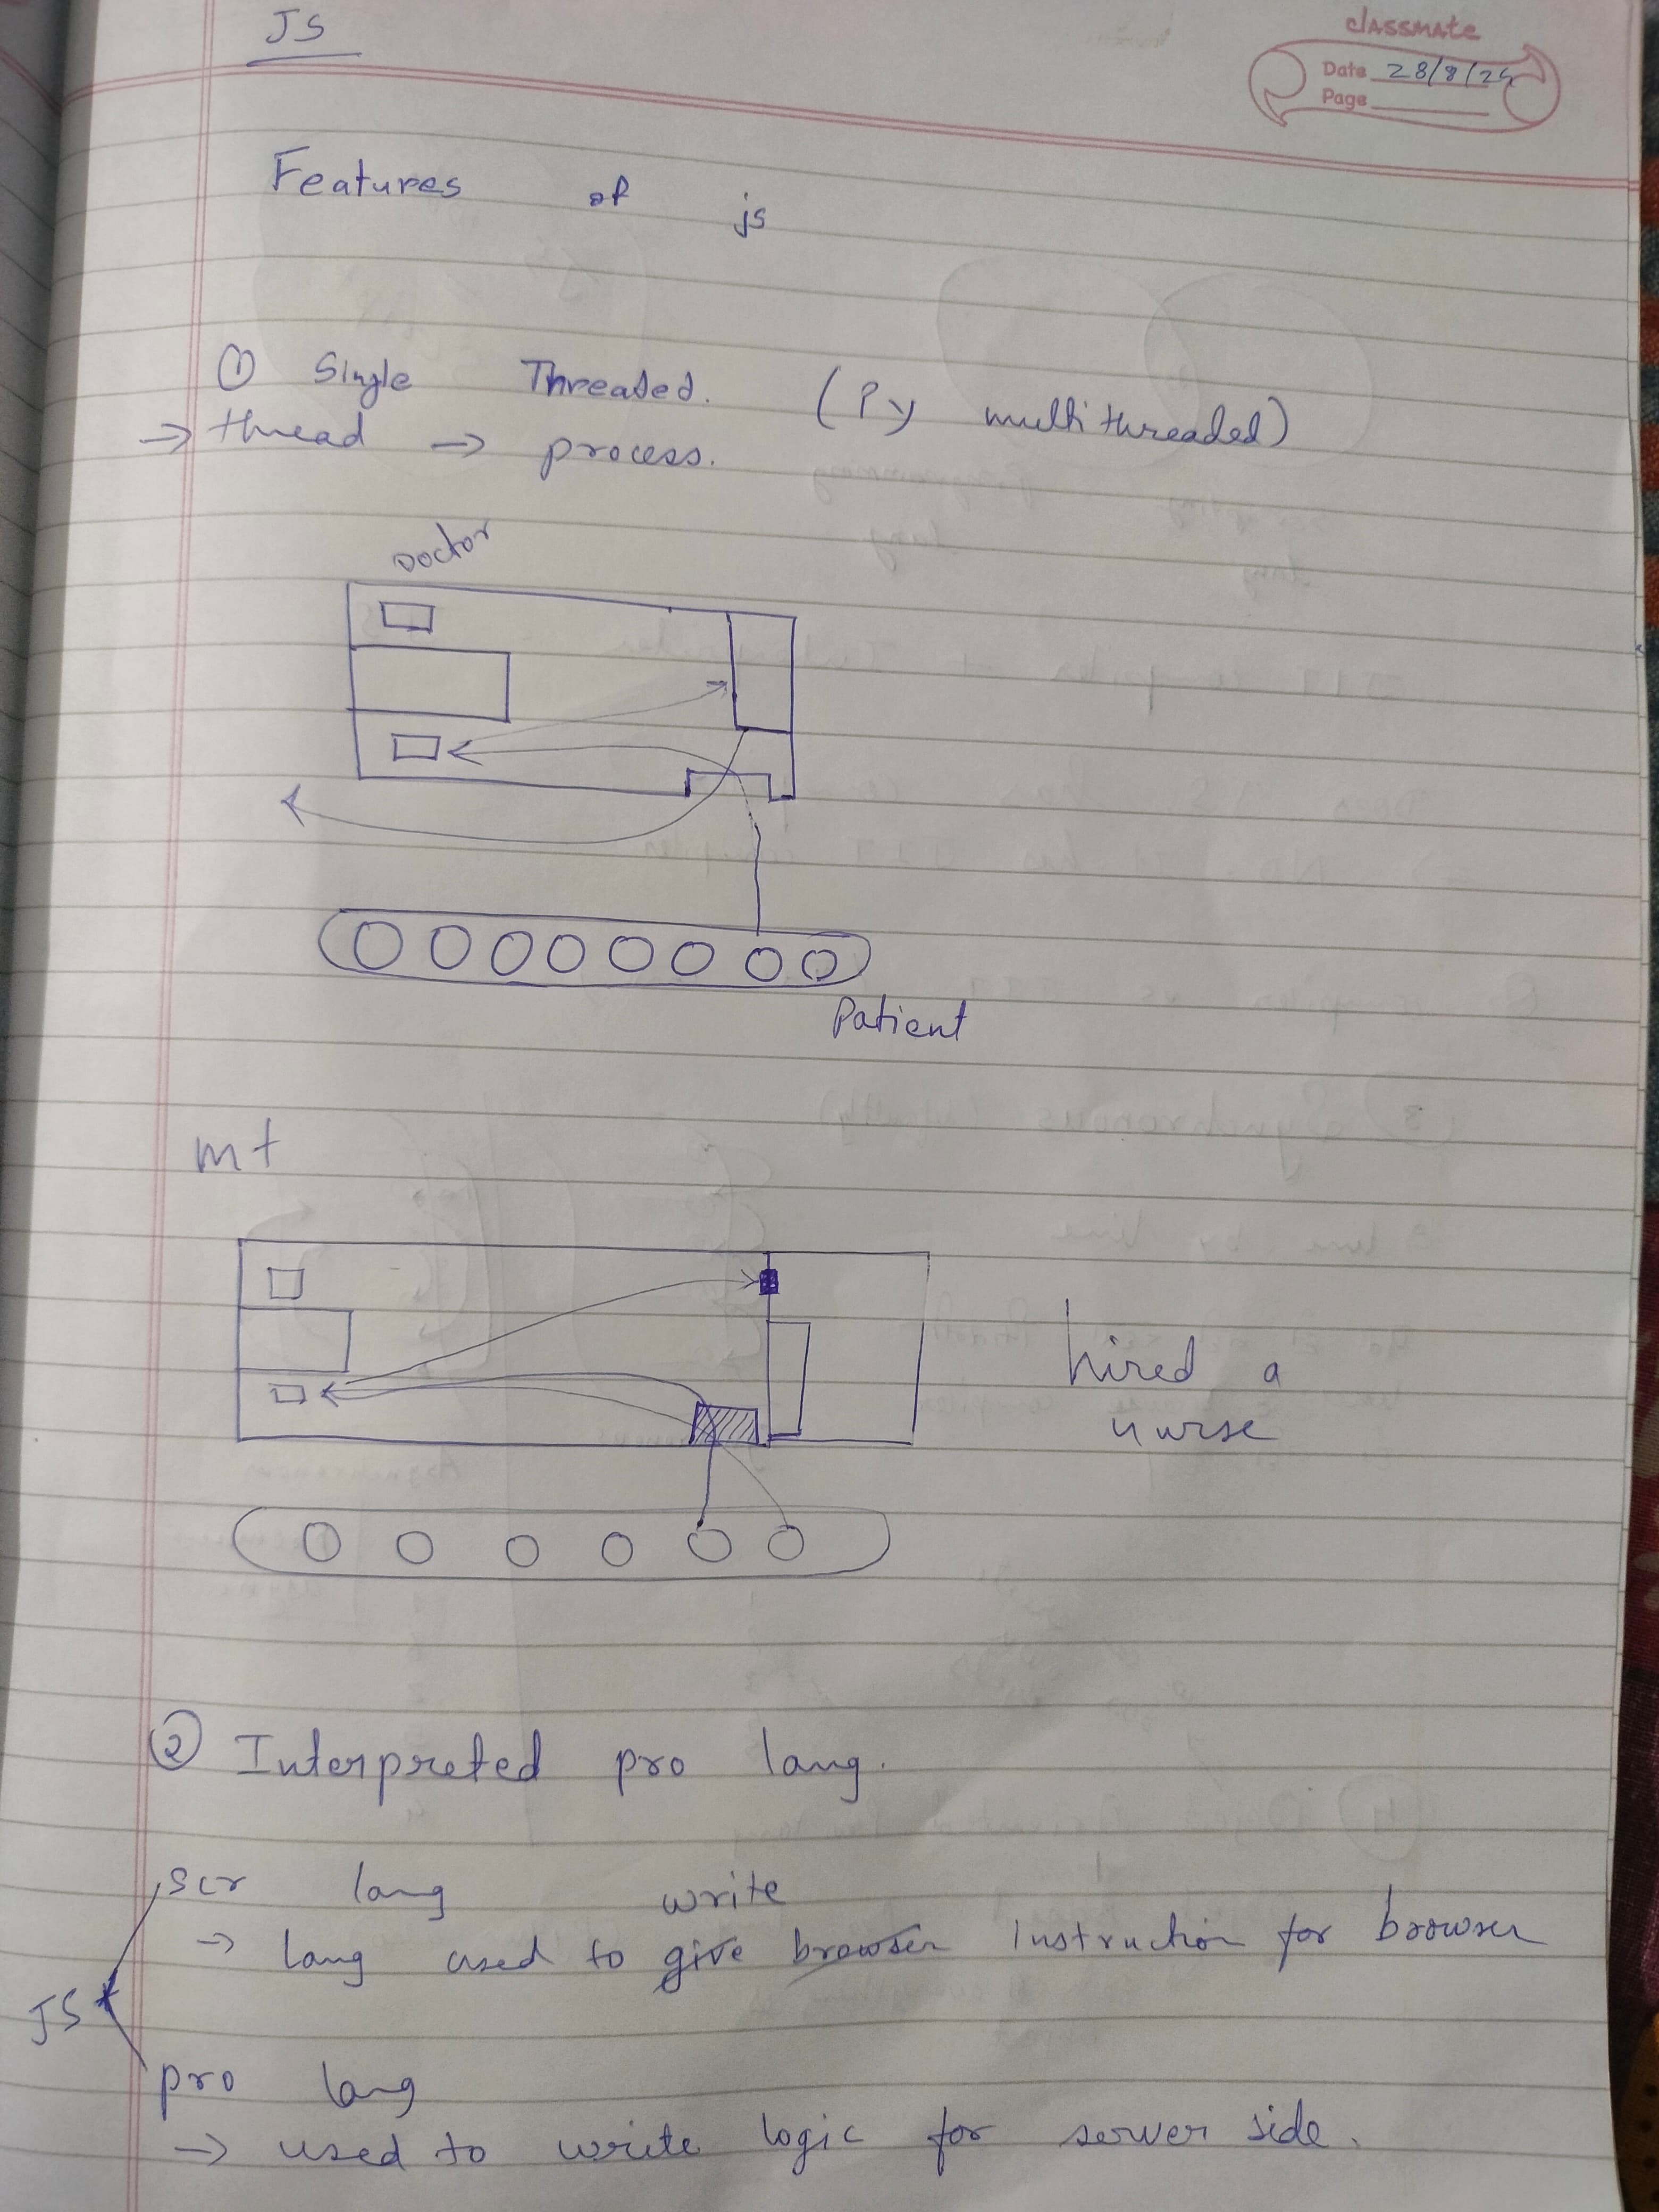 JS
classmate
Date 28/8/24
Page
Features of js
① Single Threaded. (Py multithreaded)
→ thread → process.
Doctor
Patient
mt
hired a
nurse
② Interpreted pro lang.
scr lang write
→ lang used to give browser instruction for browser
JS
pro lang
→ used to write logic for server side.